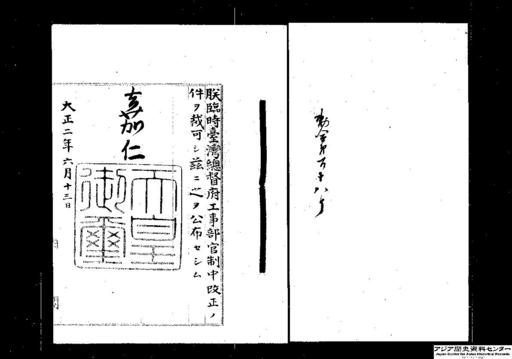 朕臨時臺灣總督府工事部官制中改正ノ
件ヲ裁可シ茲ニ之ヲ公布セシム
嘉仁
天皇御璽
大正二年六月十三日
アジア歴史資料センター
Japan Center for Asian Historical Records